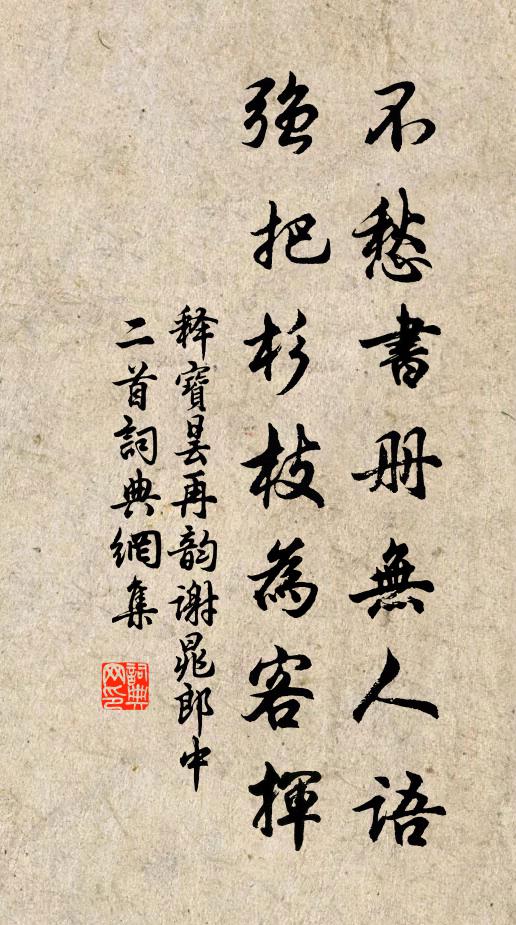 不愁書册無人語
强把杉枝為客揮
释寶曇再韵謝晁郎中
二首詞典網集
詞典
网印